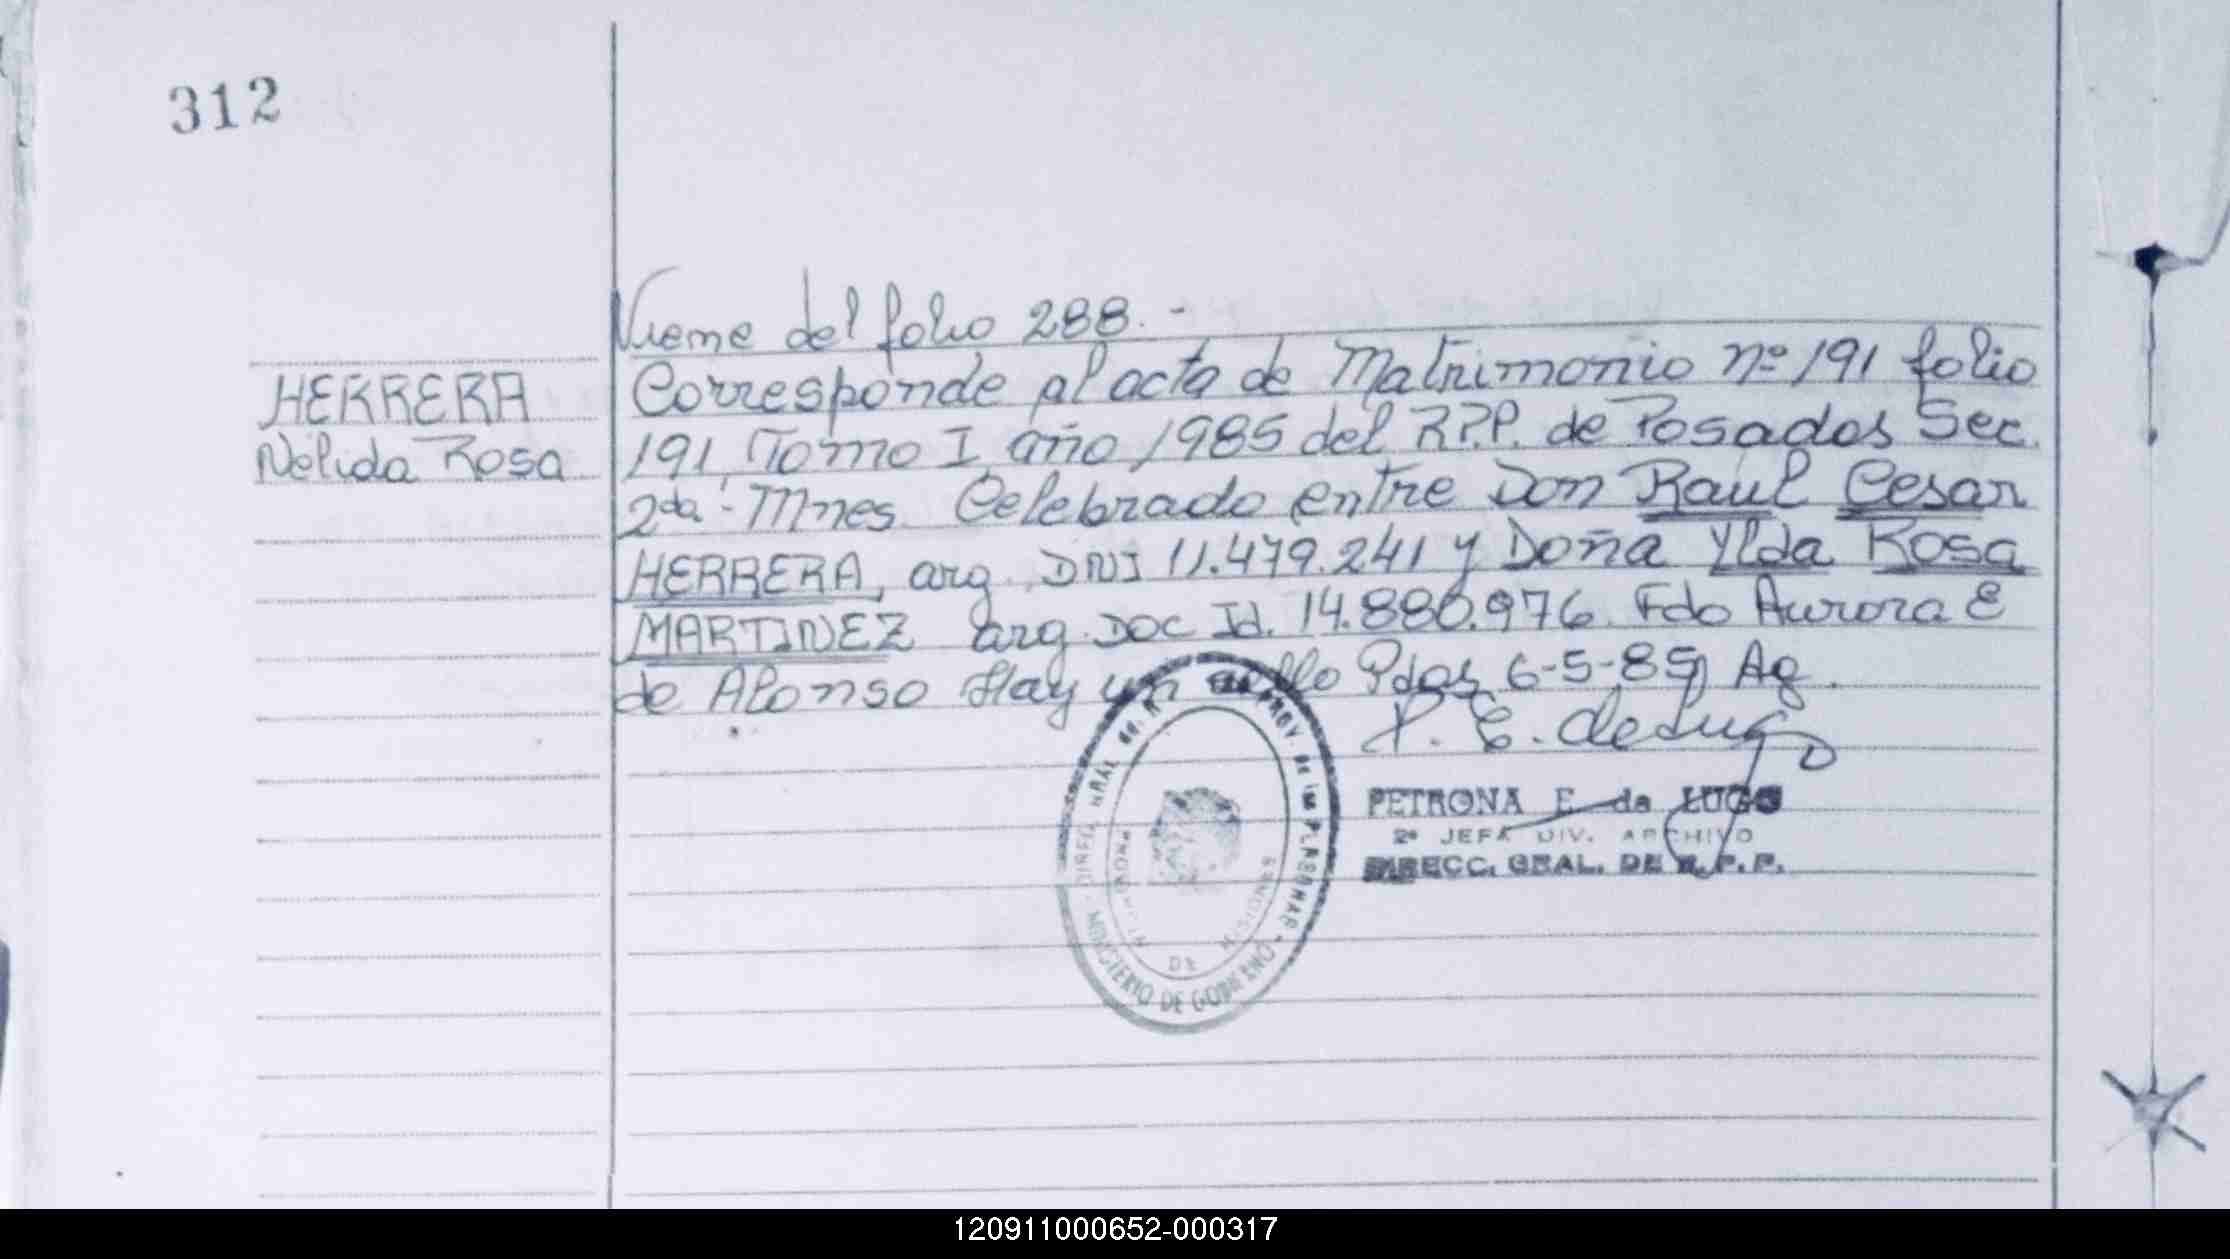 312
Viene del folio 288.-
HERRERA
Nélida Rosa
Corresponde al acta de Matrimonio nº 191 folio
191, Tomo I, año 1985 del R.P.P. de Posadas Sec.
2da. Mnes. Celebrado entre Don Raul Cesar
HERRERA, arg. DNI 11.479.241 y Doña Ylda Rosa
MARTINEZ arg. Doc Id. 14.880.976. Fdo Aurora E
de Alonso Hay un sello Pdas 6-5-85 Ag.
P. E. de Lugo
PETRONA E. de LUGO
2º JEFA DIV. ARCHIVO
DIRECC. GRAL. DE R.P.P.
MINISTERIO DE GOBIERNO
DE MISIONES
120911000652-000317